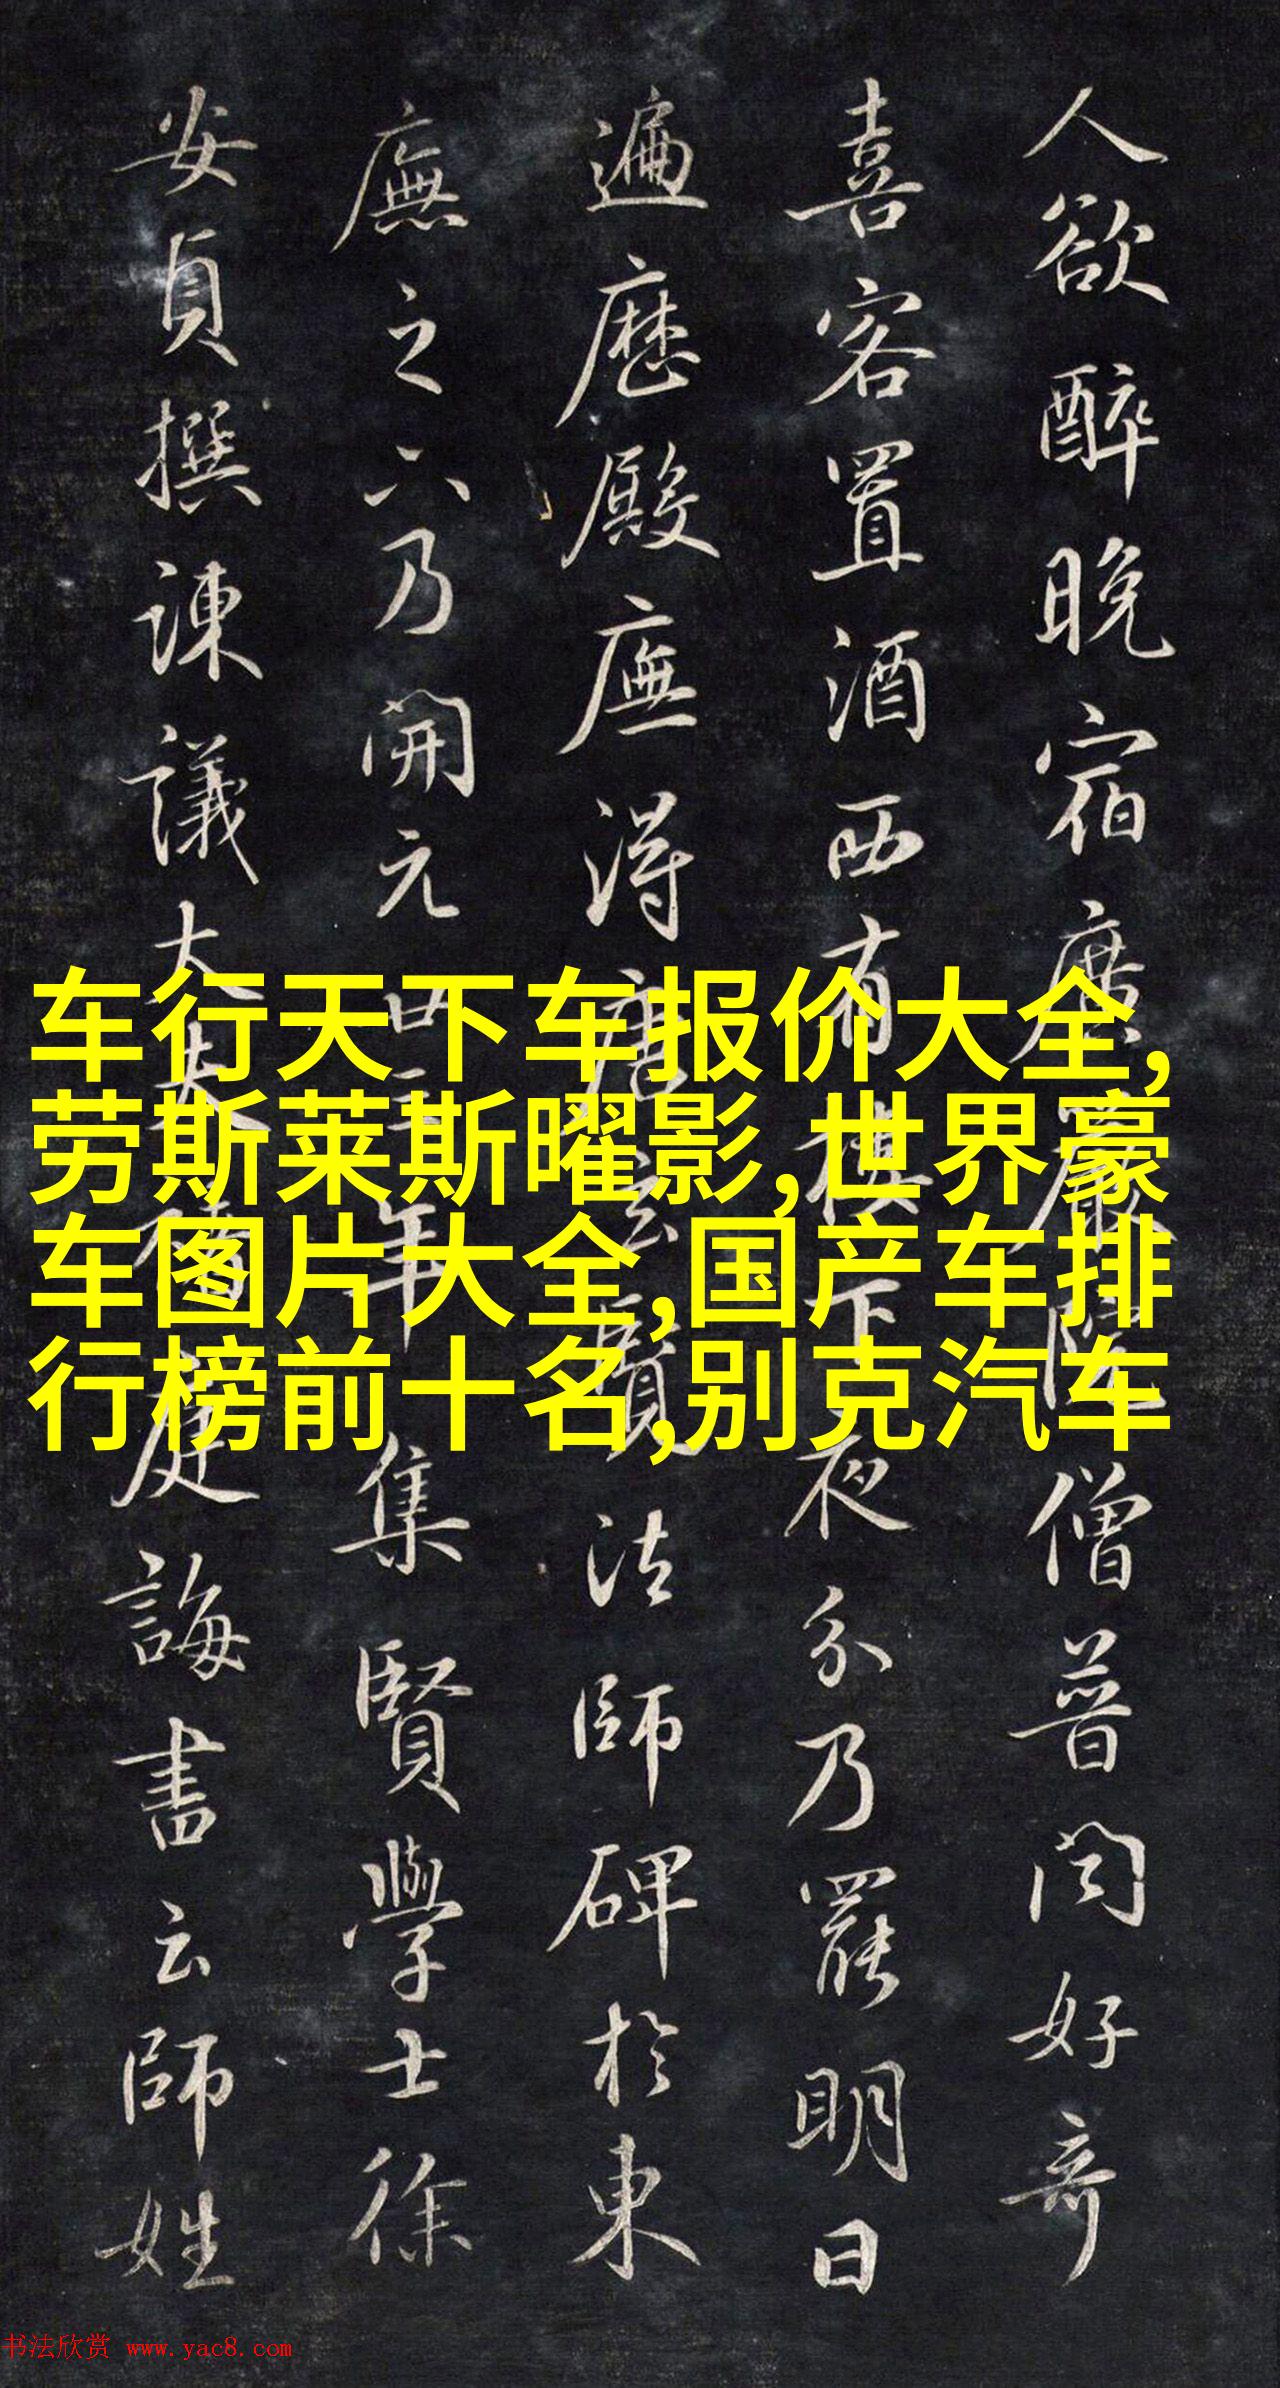 人欲醉晚宿廣嚴院僧普聞好奇
喜客置酒西南樓下夜分乃罷明日
遍歷殿廡得唐玄覽法師碑於東
廡之下乃開元年集賢學士徐
安貞撰諫議大夫褚庭誨書云師姓
车行天下车报价大全,
劳斯莱斯曜影,世界豪
车图片大全,国产车排
行榜前十名,别克汽车
书法欣赏 www.yac8.com